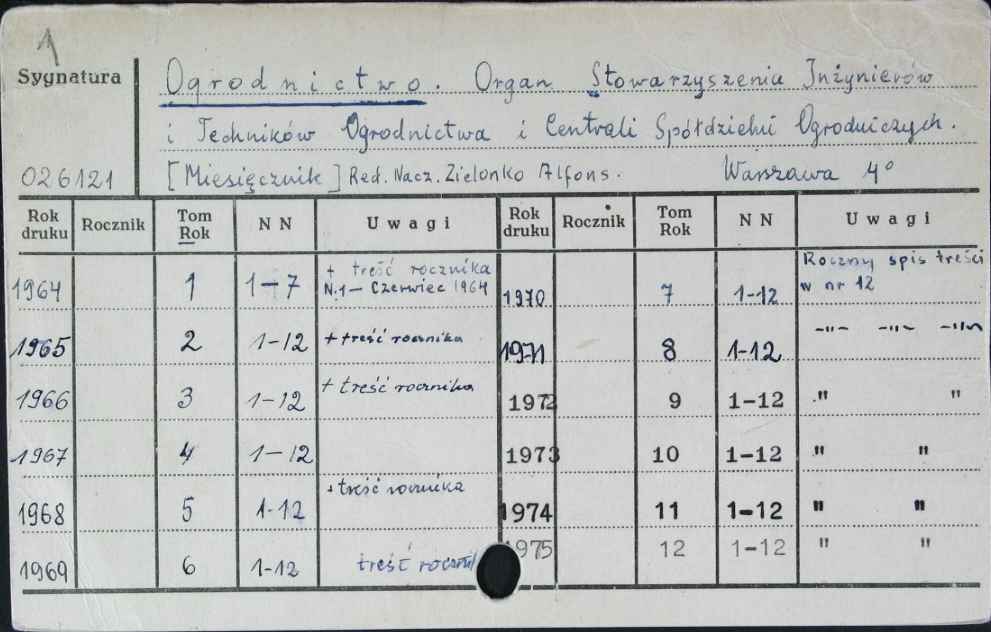 1
Sygnatura
Ogrodnictwo. Organ Stowarzyszenia Inżynierów
i Techników Ogrodnictwa i Centrali Spółdzielni Ogrodniczych.
026121 [Miesięcznik] Red. Nacz. Zielonko Alfons. Warszawa 4°
Rok druku Rocznik Tom Rok NN Uwagi Rok druku Rocznik Tom Rok NN Uwagi
1964 1 1-7 + treść rocznika N.1 - Czerwiec 1964 1970 7 1-12 Roczny spis treści w nr 12
1965 2 1-12 + treść rocznika 1971 8 1-12 -"- -"- -"-
1966 3 1-12 + treść rocznika 1972 9 1-12 " "
1967 4 1-12 1973 10 1-12 " "
1968 5 1-12 + treść rocznika 1974 11 1-12 " "
1969 6 1-12 treść roczni 1975 12 1-12 " "